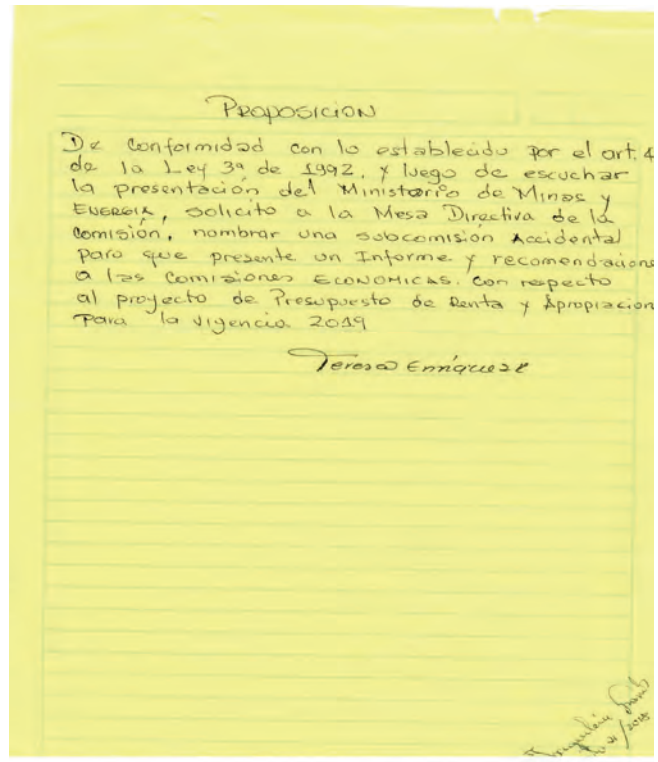 PROPOSICION
De conformidad con lo establecido por el art. 4
de la Ley 3ª de 1992, y luego de escuchar
la presentación del Ministerio de Minas y
ENERGIA, solicito a la Mesa Directiva de la
Comisión, nombrar una subcomisión Accidental
para que presente un Informe y recomendacione
a las Comisiones ECONOMICAS. con respecto
al proyecto de Presupuesto de Renta y Apropiacion
Para la vigencia 2019
Teresa Enríquez R
/2018